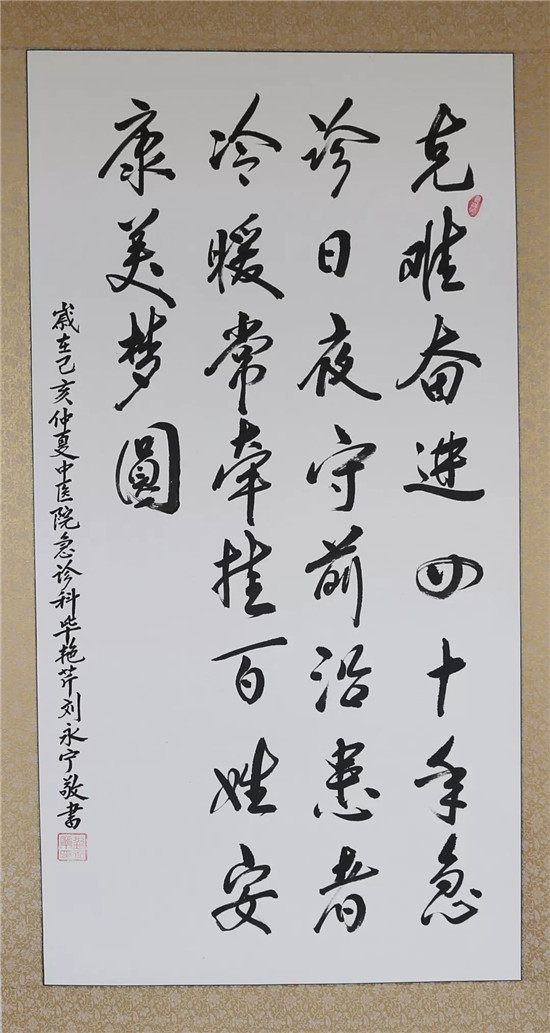 克难奋进四十年急
诊日夜守前沿患者
冷暖常牵挂百姓安
康美梦圆
岁在己亥仲夏中医院急诊科毕艳芹刘永宁敬书